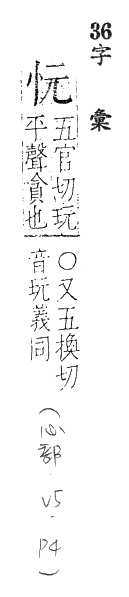 36字彙
忨
五官切玩
平聲貪也
○又五換切
音玩義同
(心部 V5. P4)